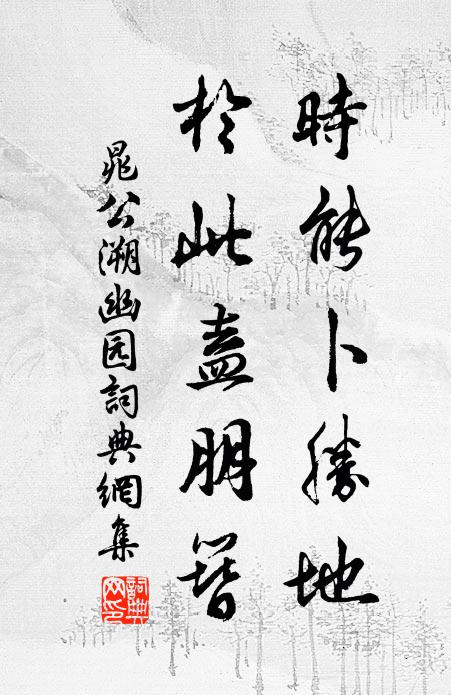 時能卜勝地
於此盍朋簪
晁公溯幽园詞典網集
詞典
网印